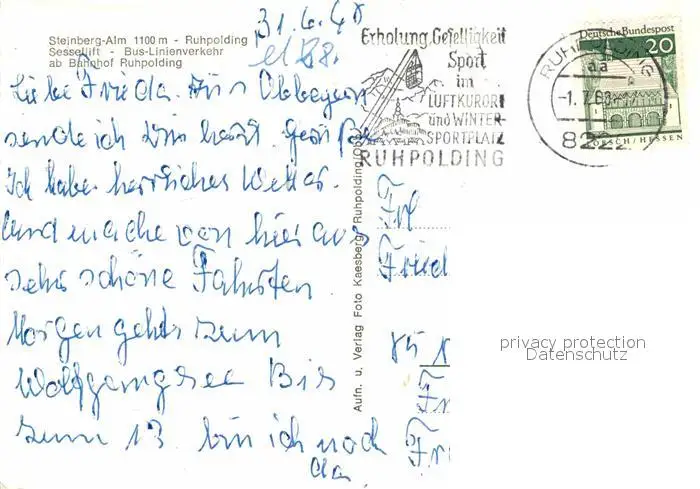 Steinberg-Alm 1100 m - Ruhpolding
Sessellift - Bus-Linienverkehr
ab Bahnhof Ruhpolding
31.6.
Liebe Frieda. Aus Obbayern
sende ich Dir herzl. Grüße
Ich habe herrliches Wetter.
Und mache von hier aus
sehr schöne Fahrten.
Morgen gehts zum
Wolfgangsee Bis
zum 13. bin ich noch
da
Aufn. u. Verlag Foto Kaesberg, Ruhpolding/Obb.
Erholung, Geselligkeit
Sport
im
LUFTKURORT
und WINTER
SPORTPLATZ
RUHPOLDING
RUHPOLDING
aa
-1.7.68
8222
Deutsche Bundespost
20
LORSCH/HESSEN
Frl
Fried
85 N
privacy protection
Datenschutz